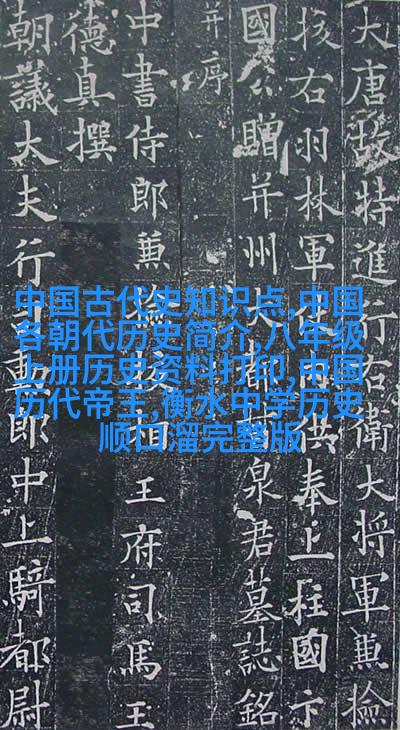 大唐故特進行右衛大將軍兼撿
挍右羽林軍供奉上柱國卞
國公贈并州大都督泉君墓誌銘
并序
中書侍郎兼撿挍相王府司馬王
德真撰
朝議大夫行勳郎中上騎都尉
中国古代史知识点,中国
各朝代历史简介,八年级
上册历史资料打印,中国
历代帝王,衡水中学历史
顺口溜完整版